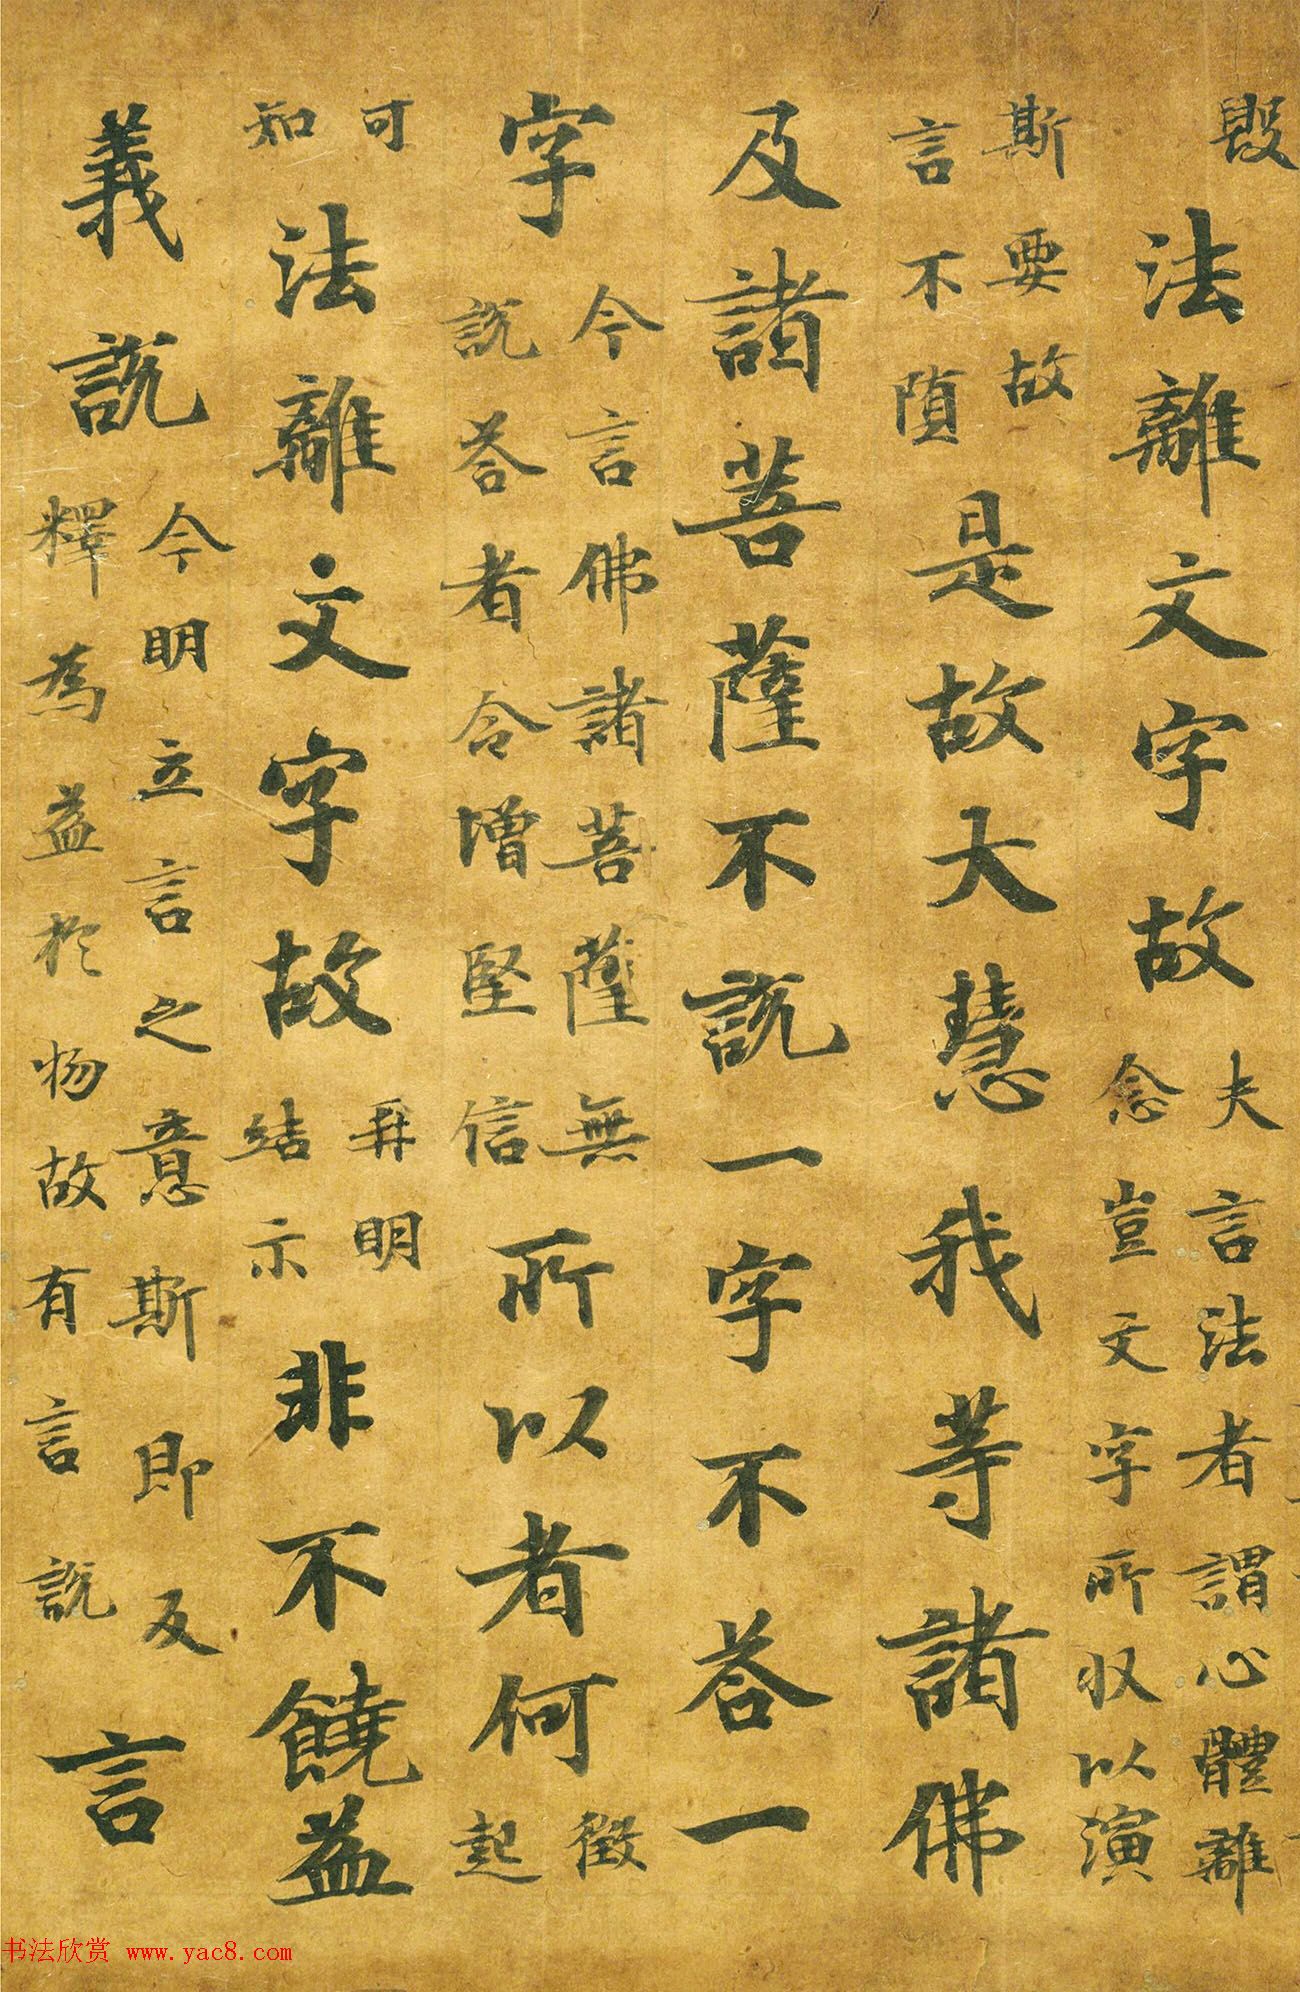 毀
法離文字故
夫言法者謂心體離
念豈文字所収以演
斯要故
言不墮
是故大慧我等諸佛
及諸菩薩不說一字不荅一
字
今言佛諸菩薩無
說荅者令增堅信
所以者何
徵
起
法離文字故
可
知
再明
結示
非不饒益
義說
今明立言之意斯即反
釋為益於物故有言說
言
书法欣赏 www.yac8.com